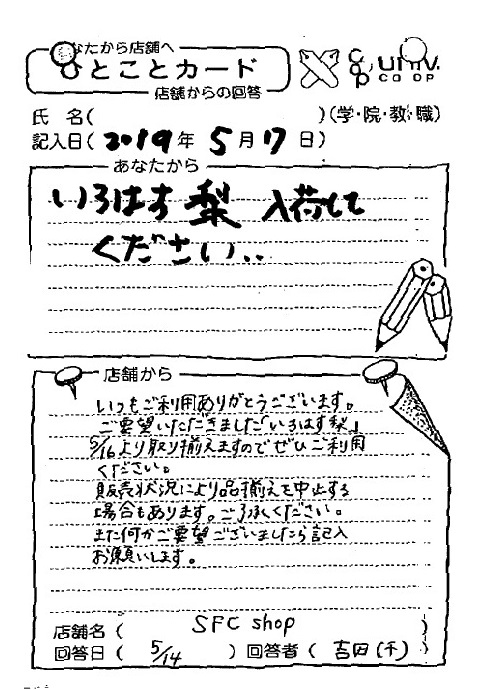 あなたから店舗へ
ひとことカード
店舗からの回答
univ.
co-op
CO-OP
氏名( )(学・院・教・職)
記入日(2019年5月17日)
あなたから
いろはす 梨 入荷して
ください..
店舗から
いつもご利用ありがとうございます。
ご要望いただきました「いろはす梨」
5/16より取り揃えますのでぜひご利用
ください。
販売状況により品揃えを中止する
場合もあります。ご了承ください。
また何かご要望ございましたら記入
お願いします。
店舗名( SFC shop )
回答日( 5/14 )回答者( 吉田(千) )